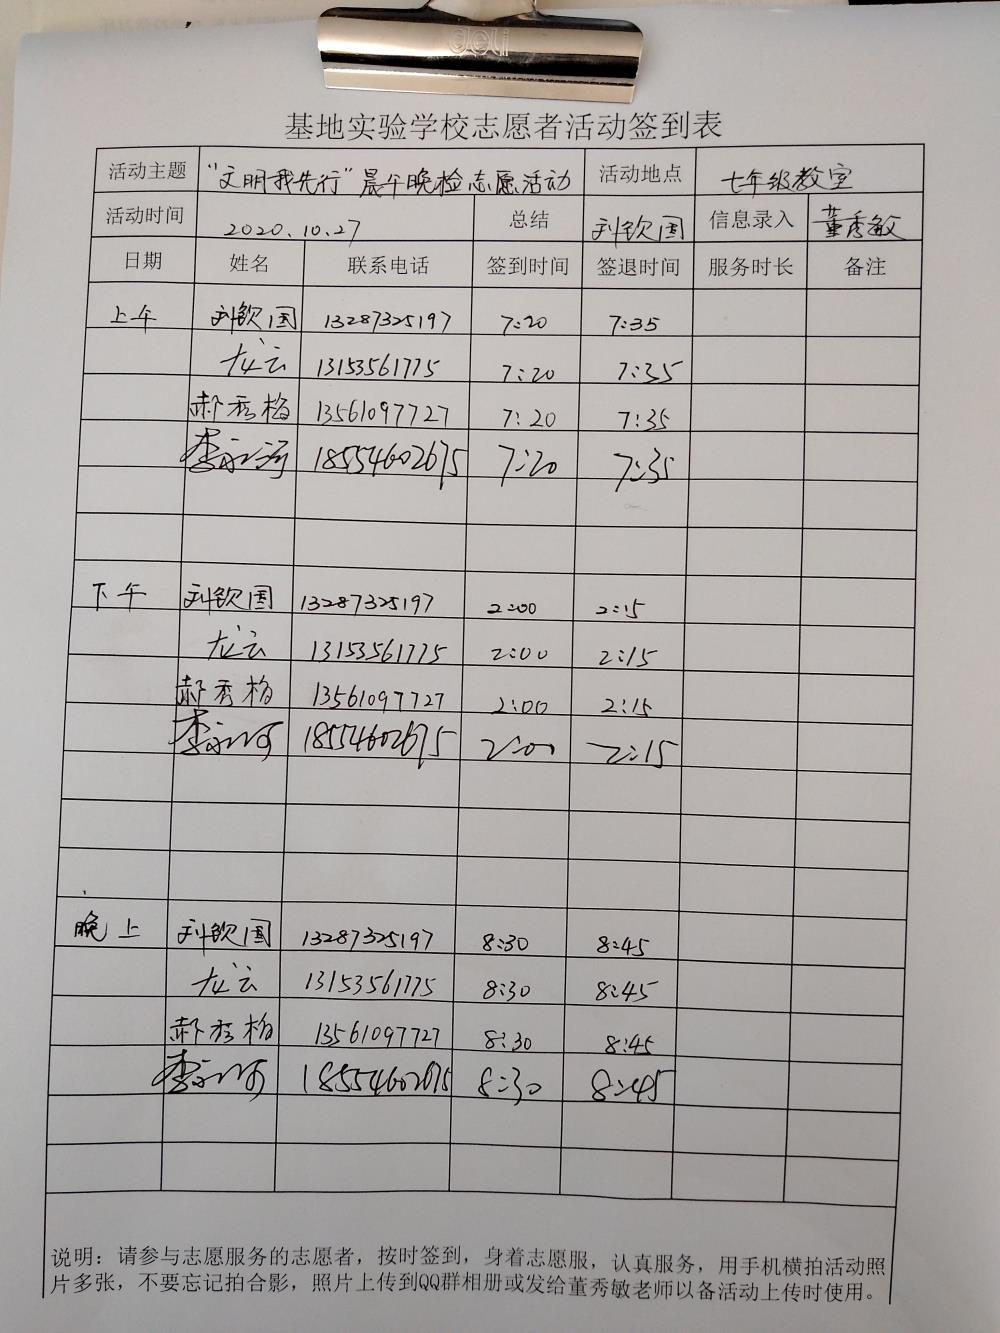 deli
基地实验学校志愿者活动签到表
活动主题 "文明我先行"晨午晚检志愿活动 活动地点 七年级教室
活动时间 2020.10.27 总结 刘钦国 信息录入 董秀敏
日期 姓名 联系电话 签到时间 签退时间 服务时长 备注
上午 刘钦国 13287325197 7:20 7:35
龙云 13153561775 7:20 7:35
郝秀梅 13561097727 7:20 7:35
李 18554602675 7:20 7:35
下午 刘钦国 13287325197 2:00 2:15
龙云 13153561775 2:00 2:15
郝秀梅 13561097727 2:00 2:15
李 18554602675 2:00 2:15
晚上 刘钦国 13287325197 8:30 8:45
龙云 13153561775 8:30 8:45
郝秀梅 13561097727 8:30 8:45
李 18554602675 8:30 8:45
说明：请参与志愿服务的志愿者，按时签到，身着志愿服，认真服务，用手机横拍活动照
片多张，不要忘记拍合影，照片上传到QQ群相册或发给董秀敏老师以备活动上传时使用。